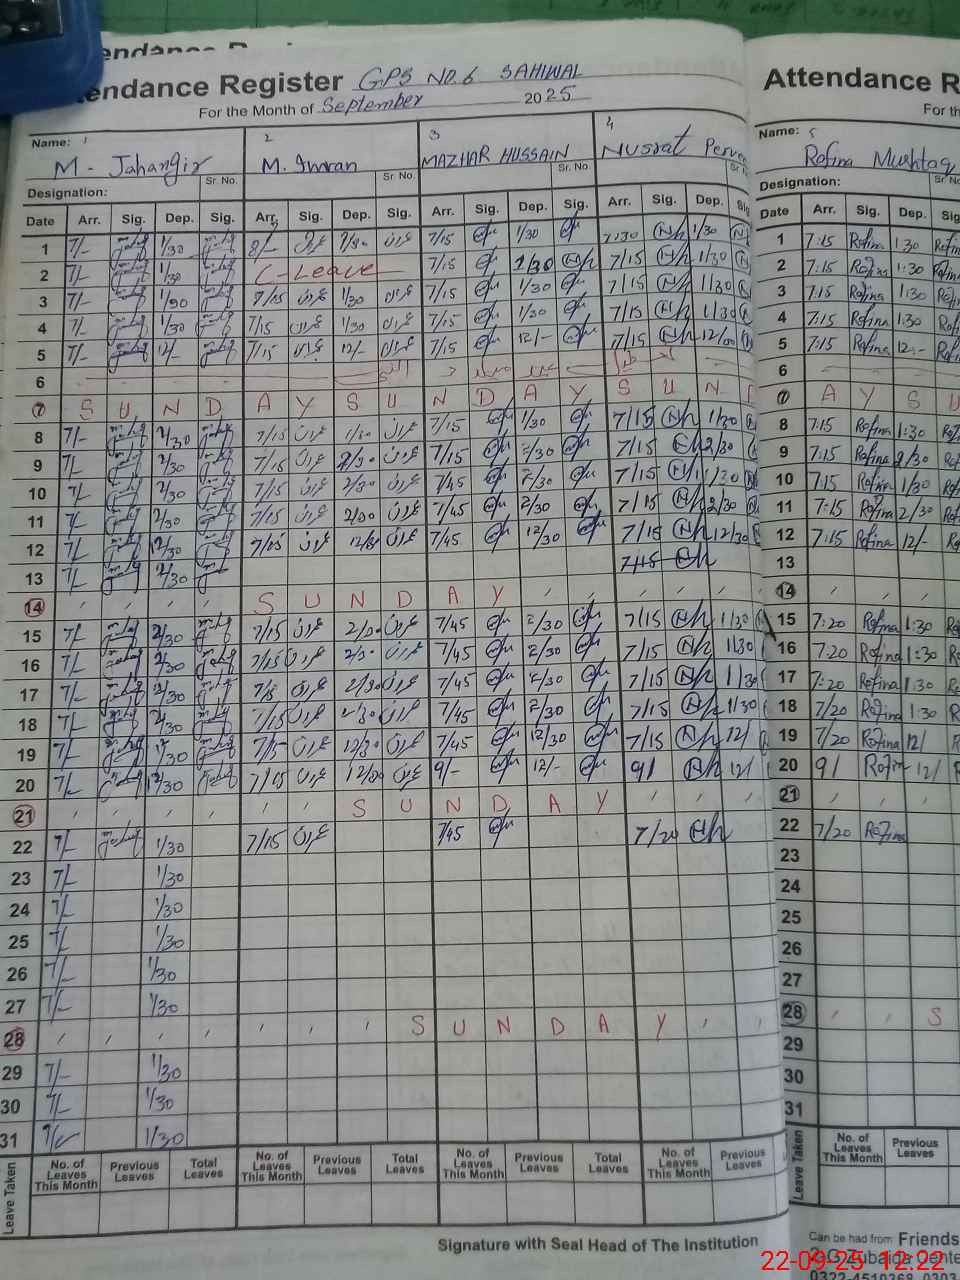 Attendance Register GPS NO.6 SAHIWAL
For the Month of September 2025
Name: 1 2 3 4
M - Jahangir M. Imran MAZHAR HUSSAIN Nusrat Perve
Designation: Sr. No. Sr. No. Sr. No.
Date Arr. Sig. Dep. Sig. Arr. Sig. Dep. Sig. Arr. Sig. Dep. Sig. Arr. Sig. Dep. Sig
1 7/- 1/30 8/- عمران 7/15 1/30 7:30 Nh 1/30
2 7/- 1/30 C-Leave 7/15 1/30 7/15 Nh 1/30
3 7/- 1/30 7/15 عمران 1/30 عمران 7/15 1/30 7/15 Nh 1/30
4 7/- 1/30 7/15 عمران 1/30 عمران 7/15 1/30 7/15 Nh 1/30
5 7/- 12/- 7/15 عمران 12/- عمران 7/15 12/- 7/15 Nh 12/00
6
7 S U N D A Y S U N D A Y S U N D
8 7/- 7/15 عمران 1/30 عمران 7/15 1/30 7/15 Nh 1/30
9 7/- 2/30 7/15 عمران 2/30 عمران 7/15 2/30 7/15 Nh 2/30
10 7/- 2/30 7/15 عمران 2/30 عمران 7/45 2/30 7/15 Nh 1/30
11 7/- 2/30 7/15 عمران 2/30 عمران 7/45 2/30 7/15 Nh 2/30
12 7/- 12/30 7/15 عمران عمران 7/45 12/30 7/15 Nh 12/30
13 7/- 2/30 7/15 Nh
14 S U N D A Y
15 7/- 2/30 7/15 عمران 2/30 عمران 7/45 2/30 7/15 Nh 1/30
16 7/- 2/30 7/15 عمران 2/30 عمران 7/45 2/30 7/15 Nh 1/30
17 7/- 2/30 7/15 عمران 2/30 عمران 7/45 2/30 7/15 Nh 1/30
18 7/- 2/30 7/15 عمران 2/30 عمران 7/45 2/30 7/15 Nh 1/30
19 7/- 12/30 7/15 عمران 12/30 عمران 7/45 12/30 7/15 Nh 12/
20 7/- 12/30 7/15 عمران 12/30 عمران 9/- 12/- 9/ Nh 12/
21 S U N D A Y
22 7/- 1/30 7/15 عمران 7/45 7/20 Nh
23 7/- 1/30
24 7/- 1/30
25 7/- 1/30
26 7/- 1/30
27 7/- 1/30
28 S U N D A Y
29 7/- 1/30
30 7/- 1/30
31 7/- 1/30
Leave Taken
No. of Leaves This Month Previous Leaves Total Leaves No. of Leaves This Month Previous Leaves Total Leaves No. of Leaves This Month Previous Leaves Total Leaves No. of Leaves This Month Previous Leaves
Signature with Seal Head of The Institution
Attendance R
For th
Name: 5
Rofina Mushtaq
Designation: Sr No
Date Arr. Sig. Dep. Sig
1 7:15 Rofina 1:30
2 7:15 Rofina 1:30
3 7:15 Rofina 1:30
4 7:15 Rofina 1:30
5 7:15 Rofina 12:-
6
7 A Y S U
8 7:15 Rofina 1:30
9 7:15 Rofina 2/30
10 7:15 Rofina 1/30
11 7:15 Rofina 2/30
12 7:15 Rofina 12/-
13
14
15 7:20 Rofina 1:30
16 7:20 Rofina 1:30
17 7:20 Rofina 1:30
18 7/20 Rofina 1:30
19 7/20 Rofina 12/
20 9/ Rofin 12/
21
22 7/20 Rofina
23
24
25
26
27
28 S
29
30
31
Leave Taken
No. of Leaves This Month Previous Leaves
Can be had from Friends
22-09-25 12:22